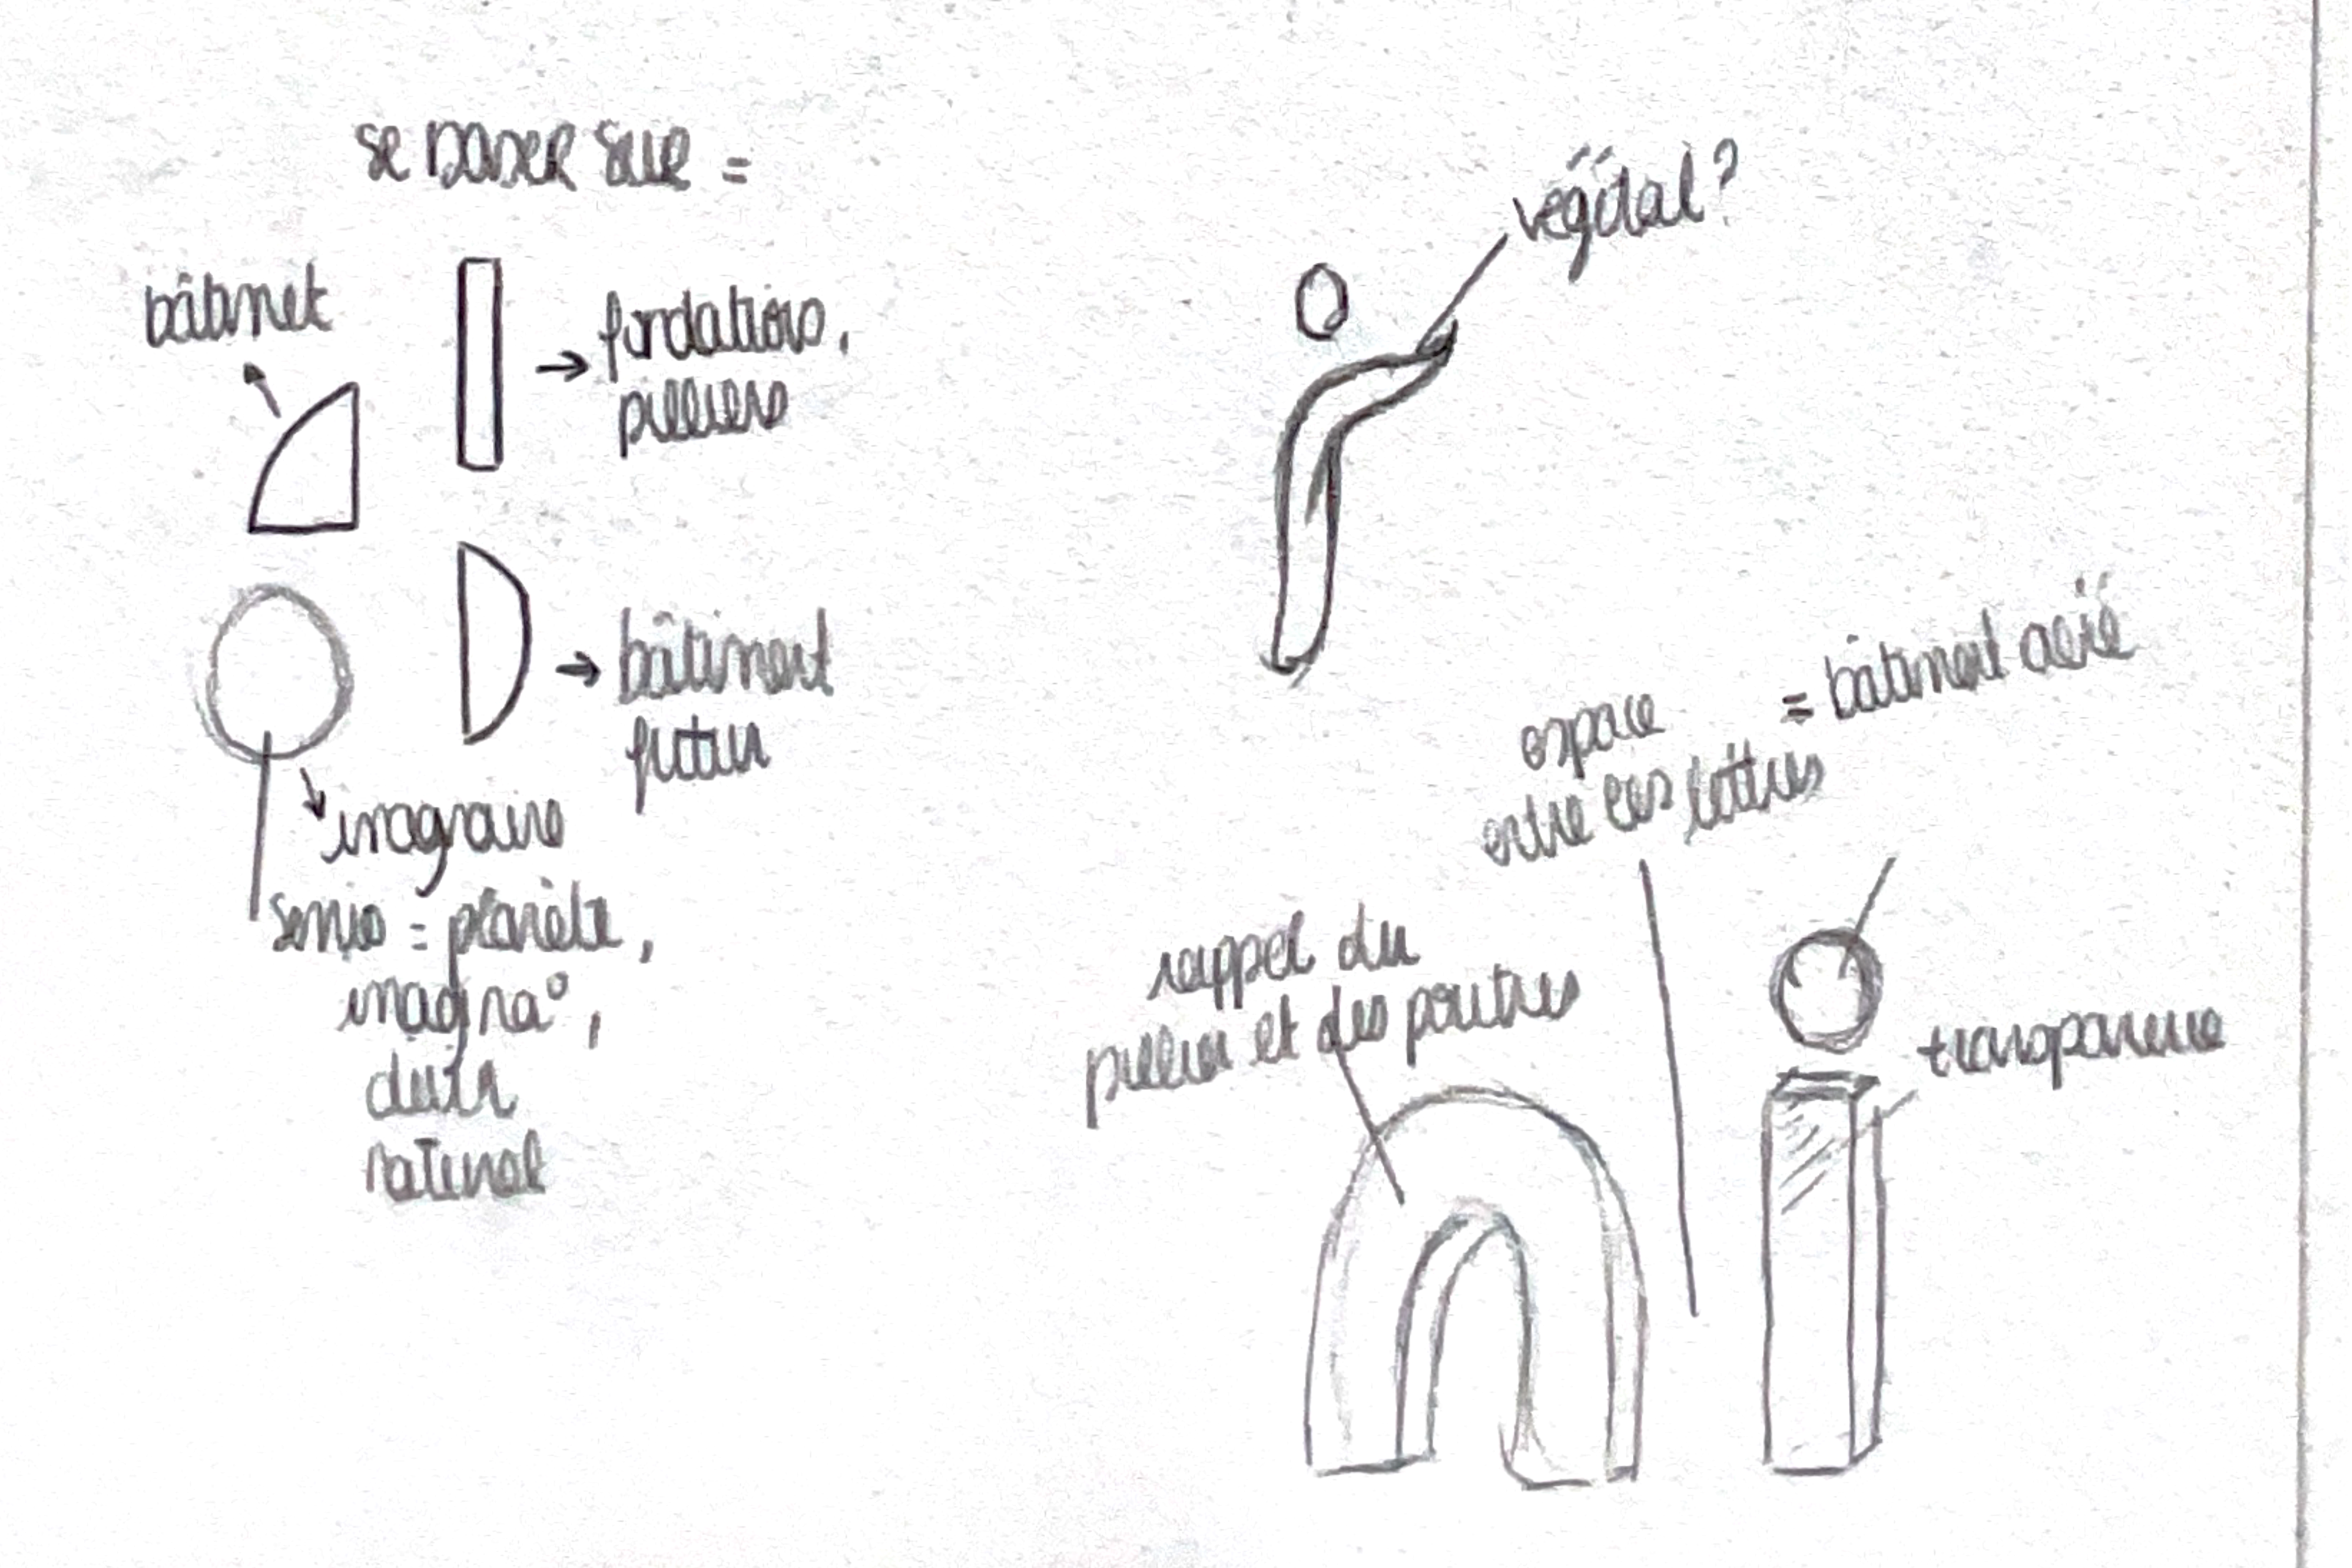 se baser sur =
bâtimet
→ fondations,
pilliers
→ bâtiment
futur
imaginaire
semio = planète,
imagina°,
naturel
végétal?
espace = bâtiment aéré
entre les lettres
rappel du
pillier et des poutres
transparence